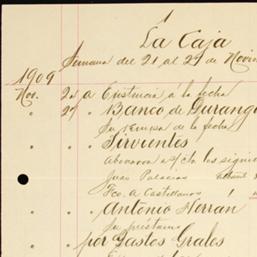 La Caja
Semana del 21 al 27 de Novi
1909
Nov. 22 a Existencia a la fecha
" 27 " Banco de Durango
Su remesa de la fecha
" " " Sirvientes
Abonaron a/c los sigui
Juan Palacios
Fco. A Castellanos
" " " Antonio Herran
Su préstamo
" " por Gastos Grales